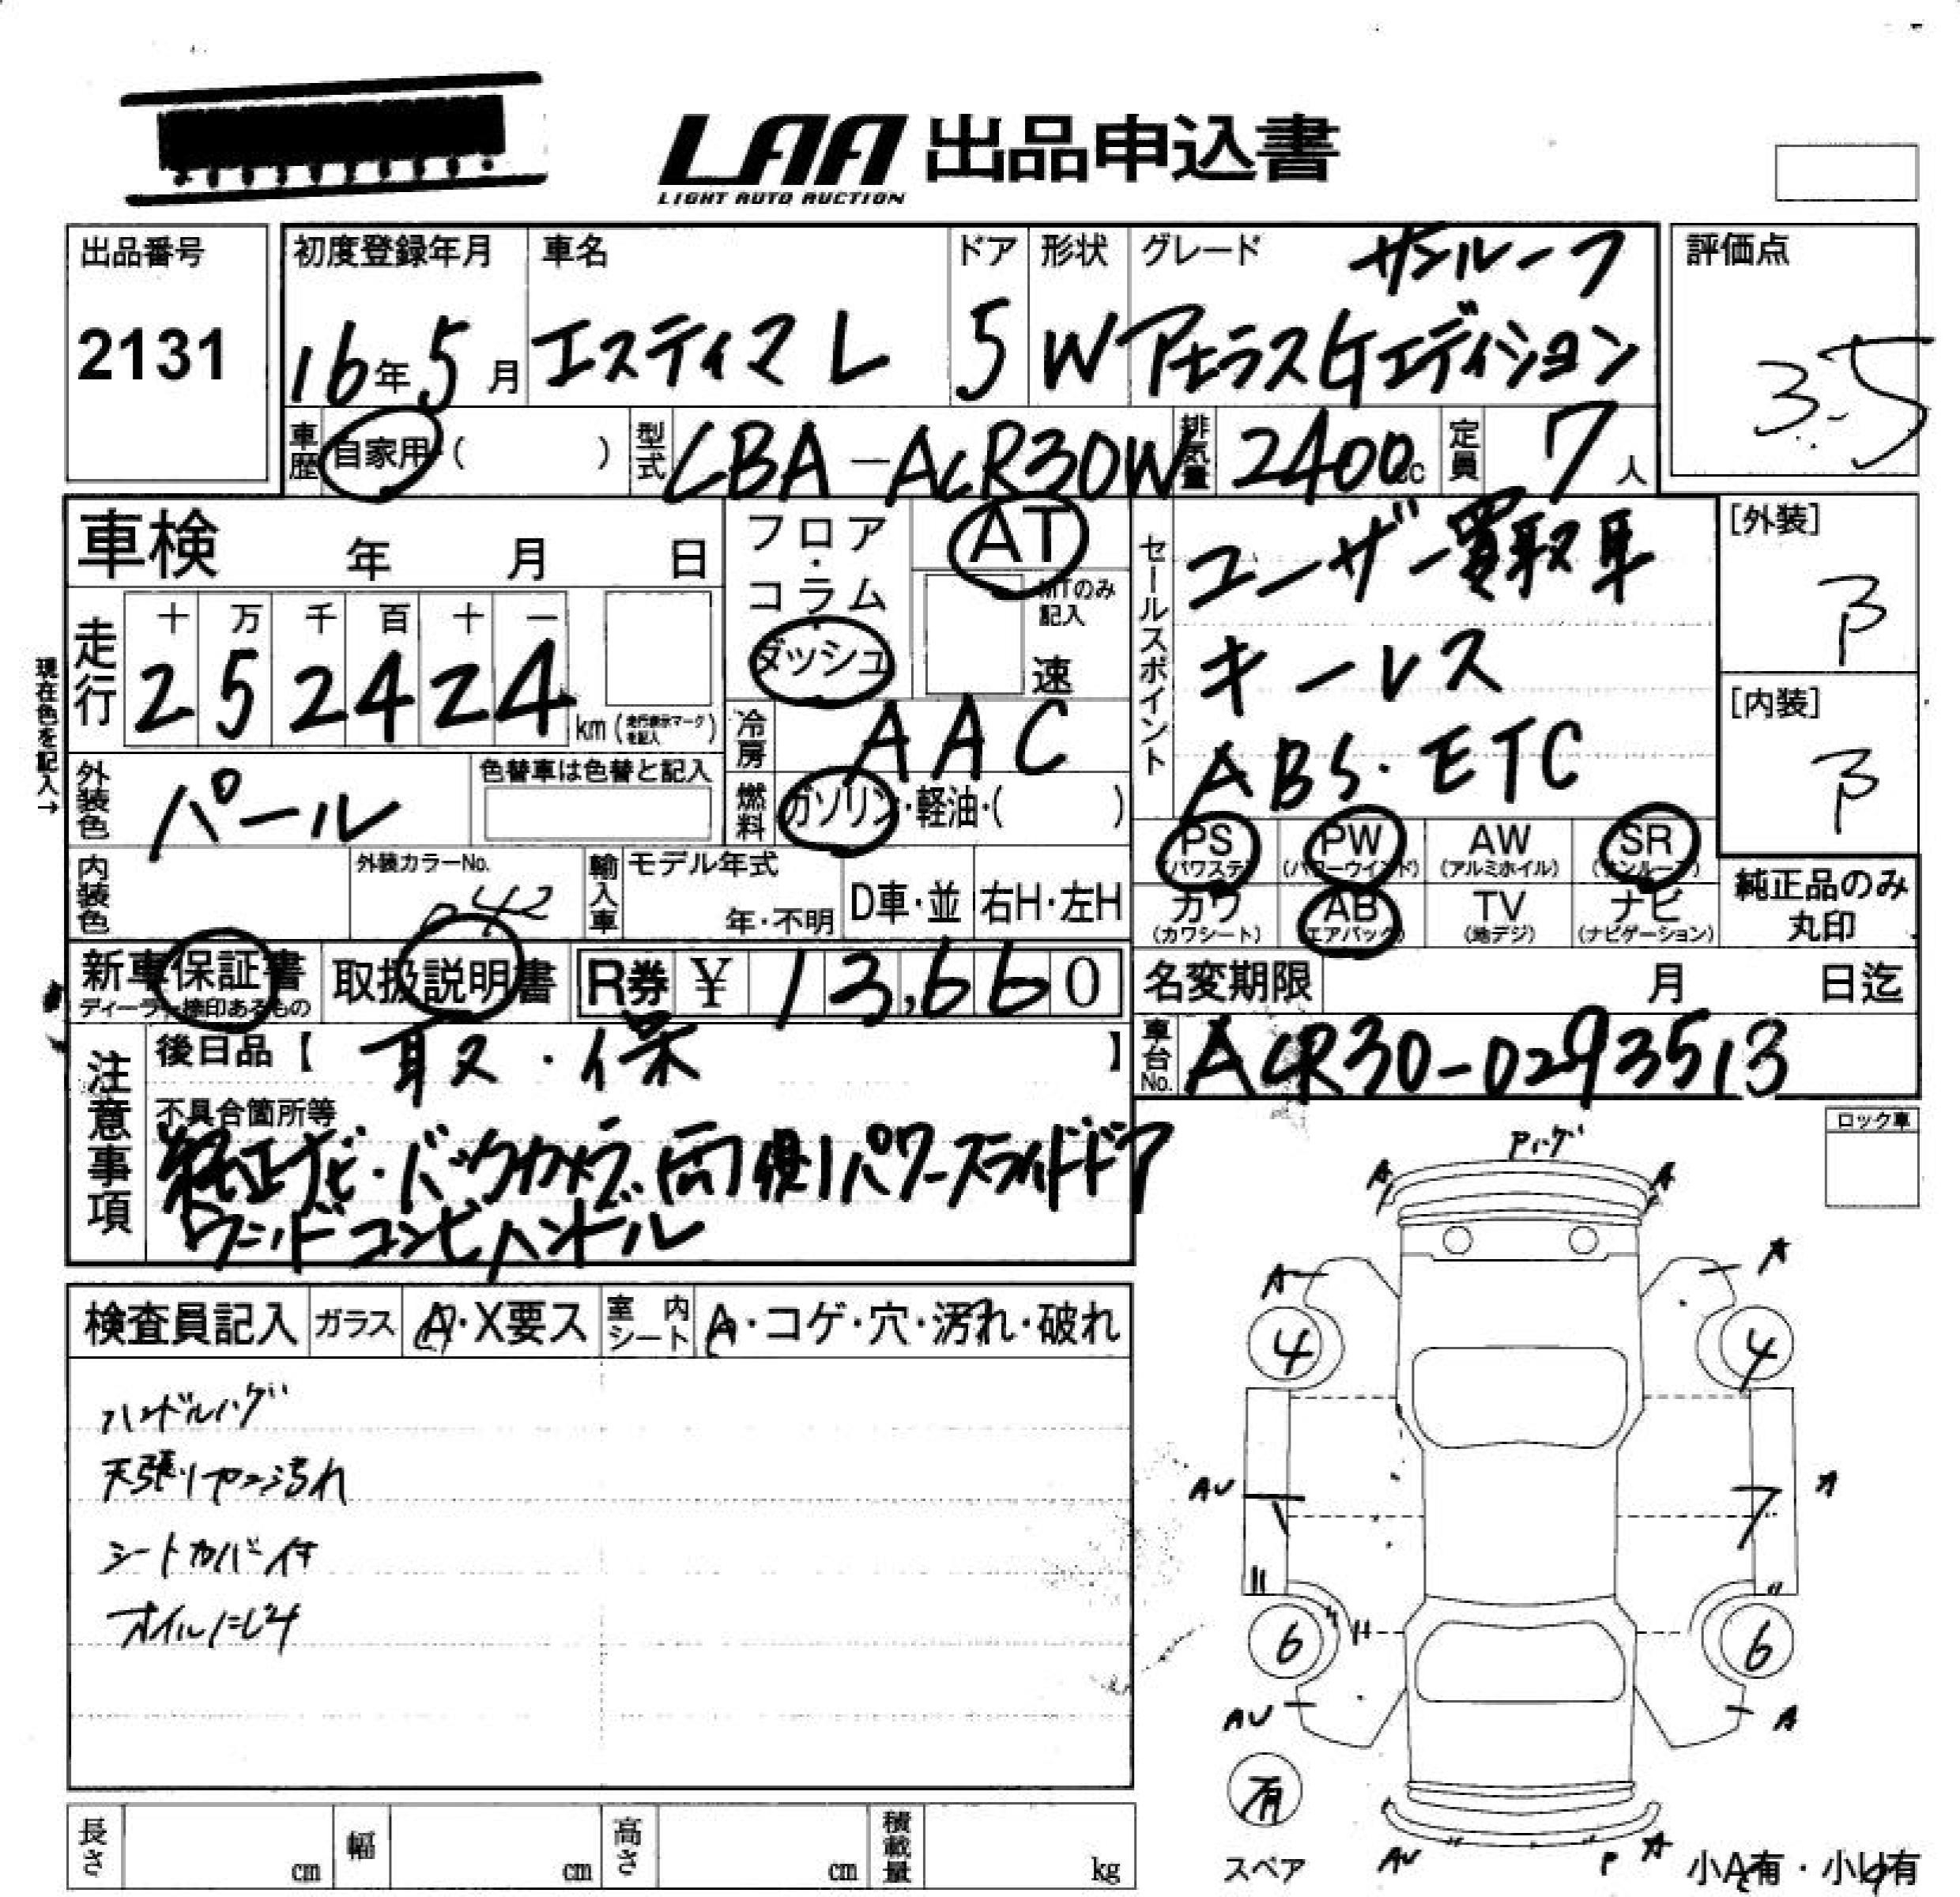 LAA 出品申込書
LIGHT AUTO AUCTION
出品番号
2131
初度登録年月
16年5月
車名
エスティマ L
ドア
5
形状
W
グレード
サンルーフ
アエラスGエディション
評価点
3.5
車歴
自家用・( )
型式
CBA-ACR30W
排気量
2400cc
定員
7人
車検 年 月 日
現在色を記入→
走行
十 万 千 百 十 一
2 5 2 4 2 4 km (走行表示マークを記入)
フロア・コラム
ダッシュ
AT
MTのみ記入
速
冷房
AAC
燃料
ガソリン・軽油・( )
セールスポイント
ユーザー買取車
キーレス
ABS・ETC
[外装]
β
[内装]
β
外装色
パール
色替車は色替と記入
内装色
外装カラーNo.
042
輸入車
モデル年式
年・不明
D車・並
右H・左H
PS
(パワステ)
PW
(パワーウインド)
AW
(アルミホイル)
SR
(サンルーフ)
カワ
(カワシート)
AB
(エアバック)
TV
(地デジ)
ナビ
(ナビゲーション)
純正品のみ
丸印
新車保証書
ディーラー捺印あるもの
取扱説明書
R券 ¥ 13,660
名変期限 月 日迄
車台No.
ACR30-0293513
注意事項
後日品【 取・保 】
不具合箇所等
純正ナビ・バックカメラ・両側パワースライドドア
ウッドコンビハンドル
ロック車
検査員記入
ガラス
A・X要ス
室内シート
A・コゲ・穴・汚れ・破れ
ハンドルハゲ
天張りヤニ汚れ
シートカバー付
オイルにじみ
Pハゲ
A A
A A
4 4
AU A
6 6
AU A
有
スペア
AU P A
小A有・小U有
長さ cm
幅 cm
高さ cm
積載量 kg